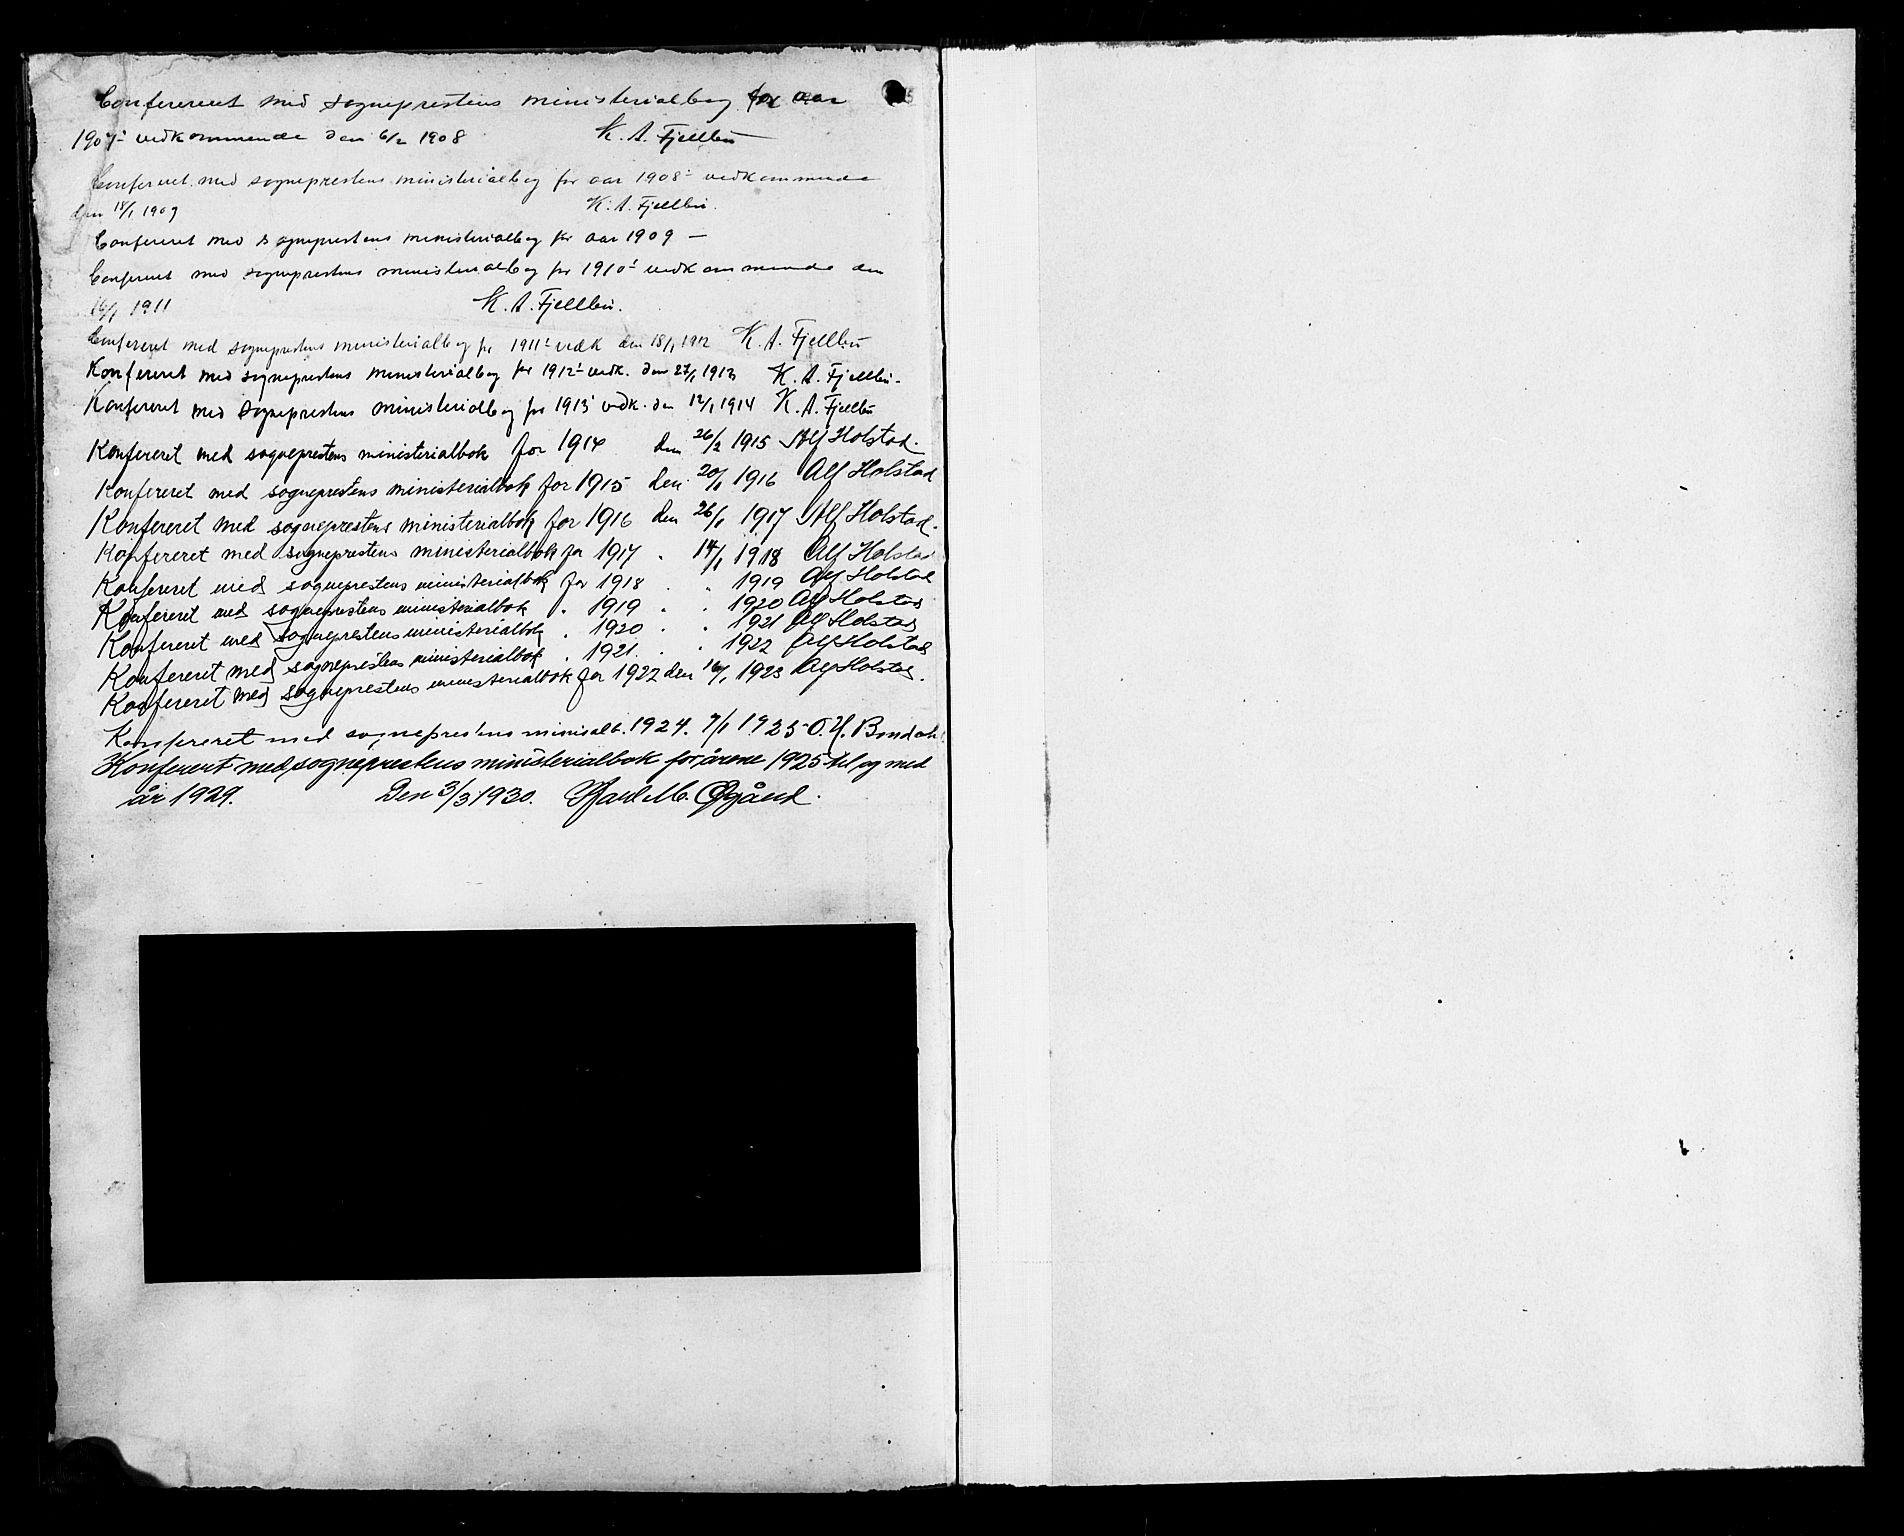 Confereret med sogneprestens ministerialbog for aar
1907's vedkommende den 6/2 1908 K. A. Fjellbu
Confereret med sogneprestens ministerialbog for aar 1908's vedkommende
den 18/1 1909 K. A. Fjellbu.
Confereret med sogneprestens ministerialbog for aar 1909 —
Confereret med sogneprestens ministerialbog for 1910's vedkommende den
16/1 1911 K. A. Fjellbu.
Confereret med sogneprestens ministerialbog for 1911's vedk den 18/1 1912 K. A. Fjellbu
Konfereret med sogneprestens ministerialbog for 1912's vedk. den 27/1 1913 K. A. Fjellbu.
Konfereret med sogneprestens ministerialbog for 1913's vedk. den 12/1 1914 K. A. Fjellbu
Konfereret med sogneprestens ministerialbok for 1914 den 26/2 1915 Alf Holstad.
Konfereret med sogneprestens ministerialbok for 1915 den 20/1 1916 Alf Holstad
Konfereret med sogneprestens ministerialbok for 1916 den 26/1 1917 Alf Holstad.
Konfereret med sogneprestens ministerialbok for 1917 " 14/1 1918 Alf Holstad
Konfereret med sogneprestens ministerialbok for 1918 " " 1919 Alf Holstad
Konfereret med sogneprestens ministerialbok " 1919 " " 1920 Alf Holstad
Konfereret med sogneprestens ministerialbok " 1920 " " 1921 Alf Holstad
Konfereret med sogneprestens ministerialbok " 1921 " " 1922 Alf Holstad
Konfereret med sogneprestens ministerialbok for 1922 den 16/1 1923 Alf Holstad.
Konfereret med sogneprestens minisalb. 1924. 7/1 1925 O. Y. Bondahl
Konferert med sogneprestens ministerialbok for årene 1925 til og med
år 1929. Den 3/3 1930. Paul M. Øgård.